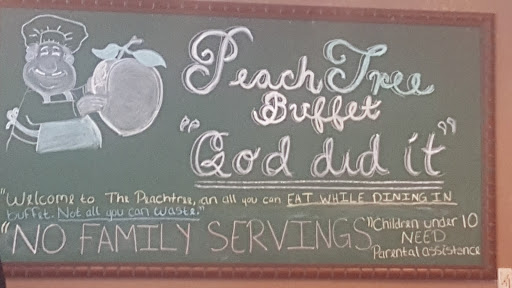 Peach Tree
Buffet
"God did it"
"Welcome to The Peachtree, an all you can EAT WHILE DINING IN
buffet. Not all you can waste."
"NO FAMILY SERVINGS"
Children under 10
NEED
Parental assistance